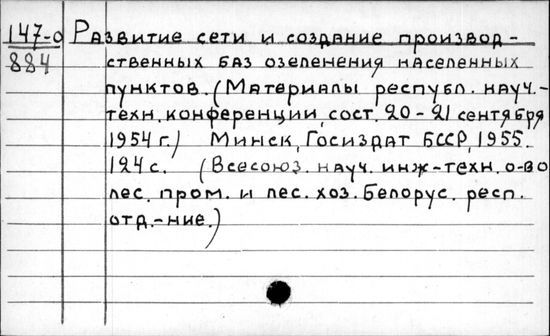 147-0 Развитие сети и создание производ-
884 ственных баз озеленения населенных
пунктов. (Материалы республ. науч.-
техн. конференции, сост. 20-21 сентября
1954 г.) Минск, Госиздат БССР, 1955.
124 с. (Всесоюз. науч. инж-техн. о-во
лес. пром. и лес. хоз. Белорус. респ.
отд.-ние.)